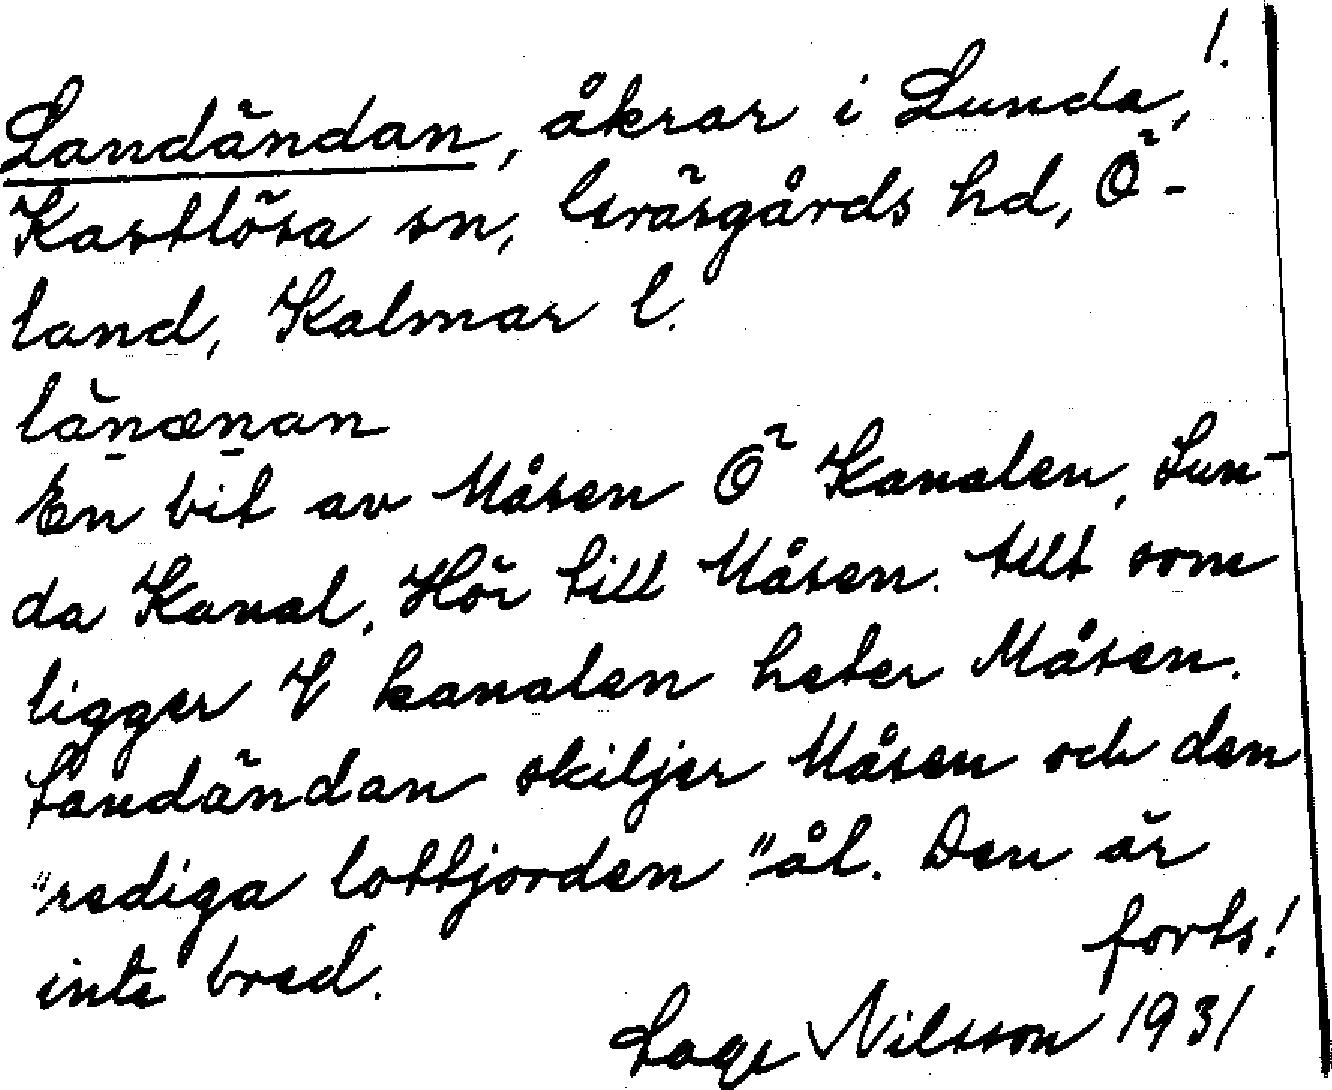 1.
Landändan, åkrar i Lunda,
Kastlösa sn, Gräsgårds hd, Ö-
land, Kalmar l.
länænan
En bit av Måsen Ö Kanalen, Lun-
da Kanal. Hör till Måsen. Allt som
ligger V kanalen heter Måsen.
Landändan skiljer Måsen och den
"rediga lottjorden" ål. Den är
inte bred.
forts!
Lage Nilsson 1931